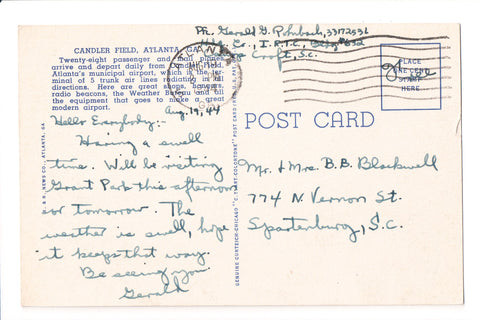 Pfc. Gerald G. Rohrbach, 33172536
Hdq. Co., I.R.T.C., Bldg #832
Camp Croft, S.C.
CANDLER FIELD, ATLANTA, GA.
Twenty-eight passenger and mail planes
arrive and depart daily from Candler Field,
Atlanta's municipal airport, which is the ter-
minal of 5 trunk air lines radiating in all
directions. Here are great shops, hangars,
radio beacons, the Weather Bureau and all
the equipment that goes to make a great
modern airport.
ATLANTA
GA.
PLACE
ONE CENT
STAMP
HERE
Free
Aug. 19, 44
Hello Everybody:-
Having a swell
time. Will be visiting
Grant Park this afternoon
or tomorrow. The
weather is swell, hope
it keeps that way.
Be seeing you
Gerald
POST CARD
Mr. & Mrs. B. B. Blackwell
774 N. Vernon St.
Spartanburg, S.C.
NEWS CO., ATLANTA, GA.
GENUINE CURTEICH-CHICAGO "C.T. ART-COLORTONE" POST CARD (REG. U.S. PAT.